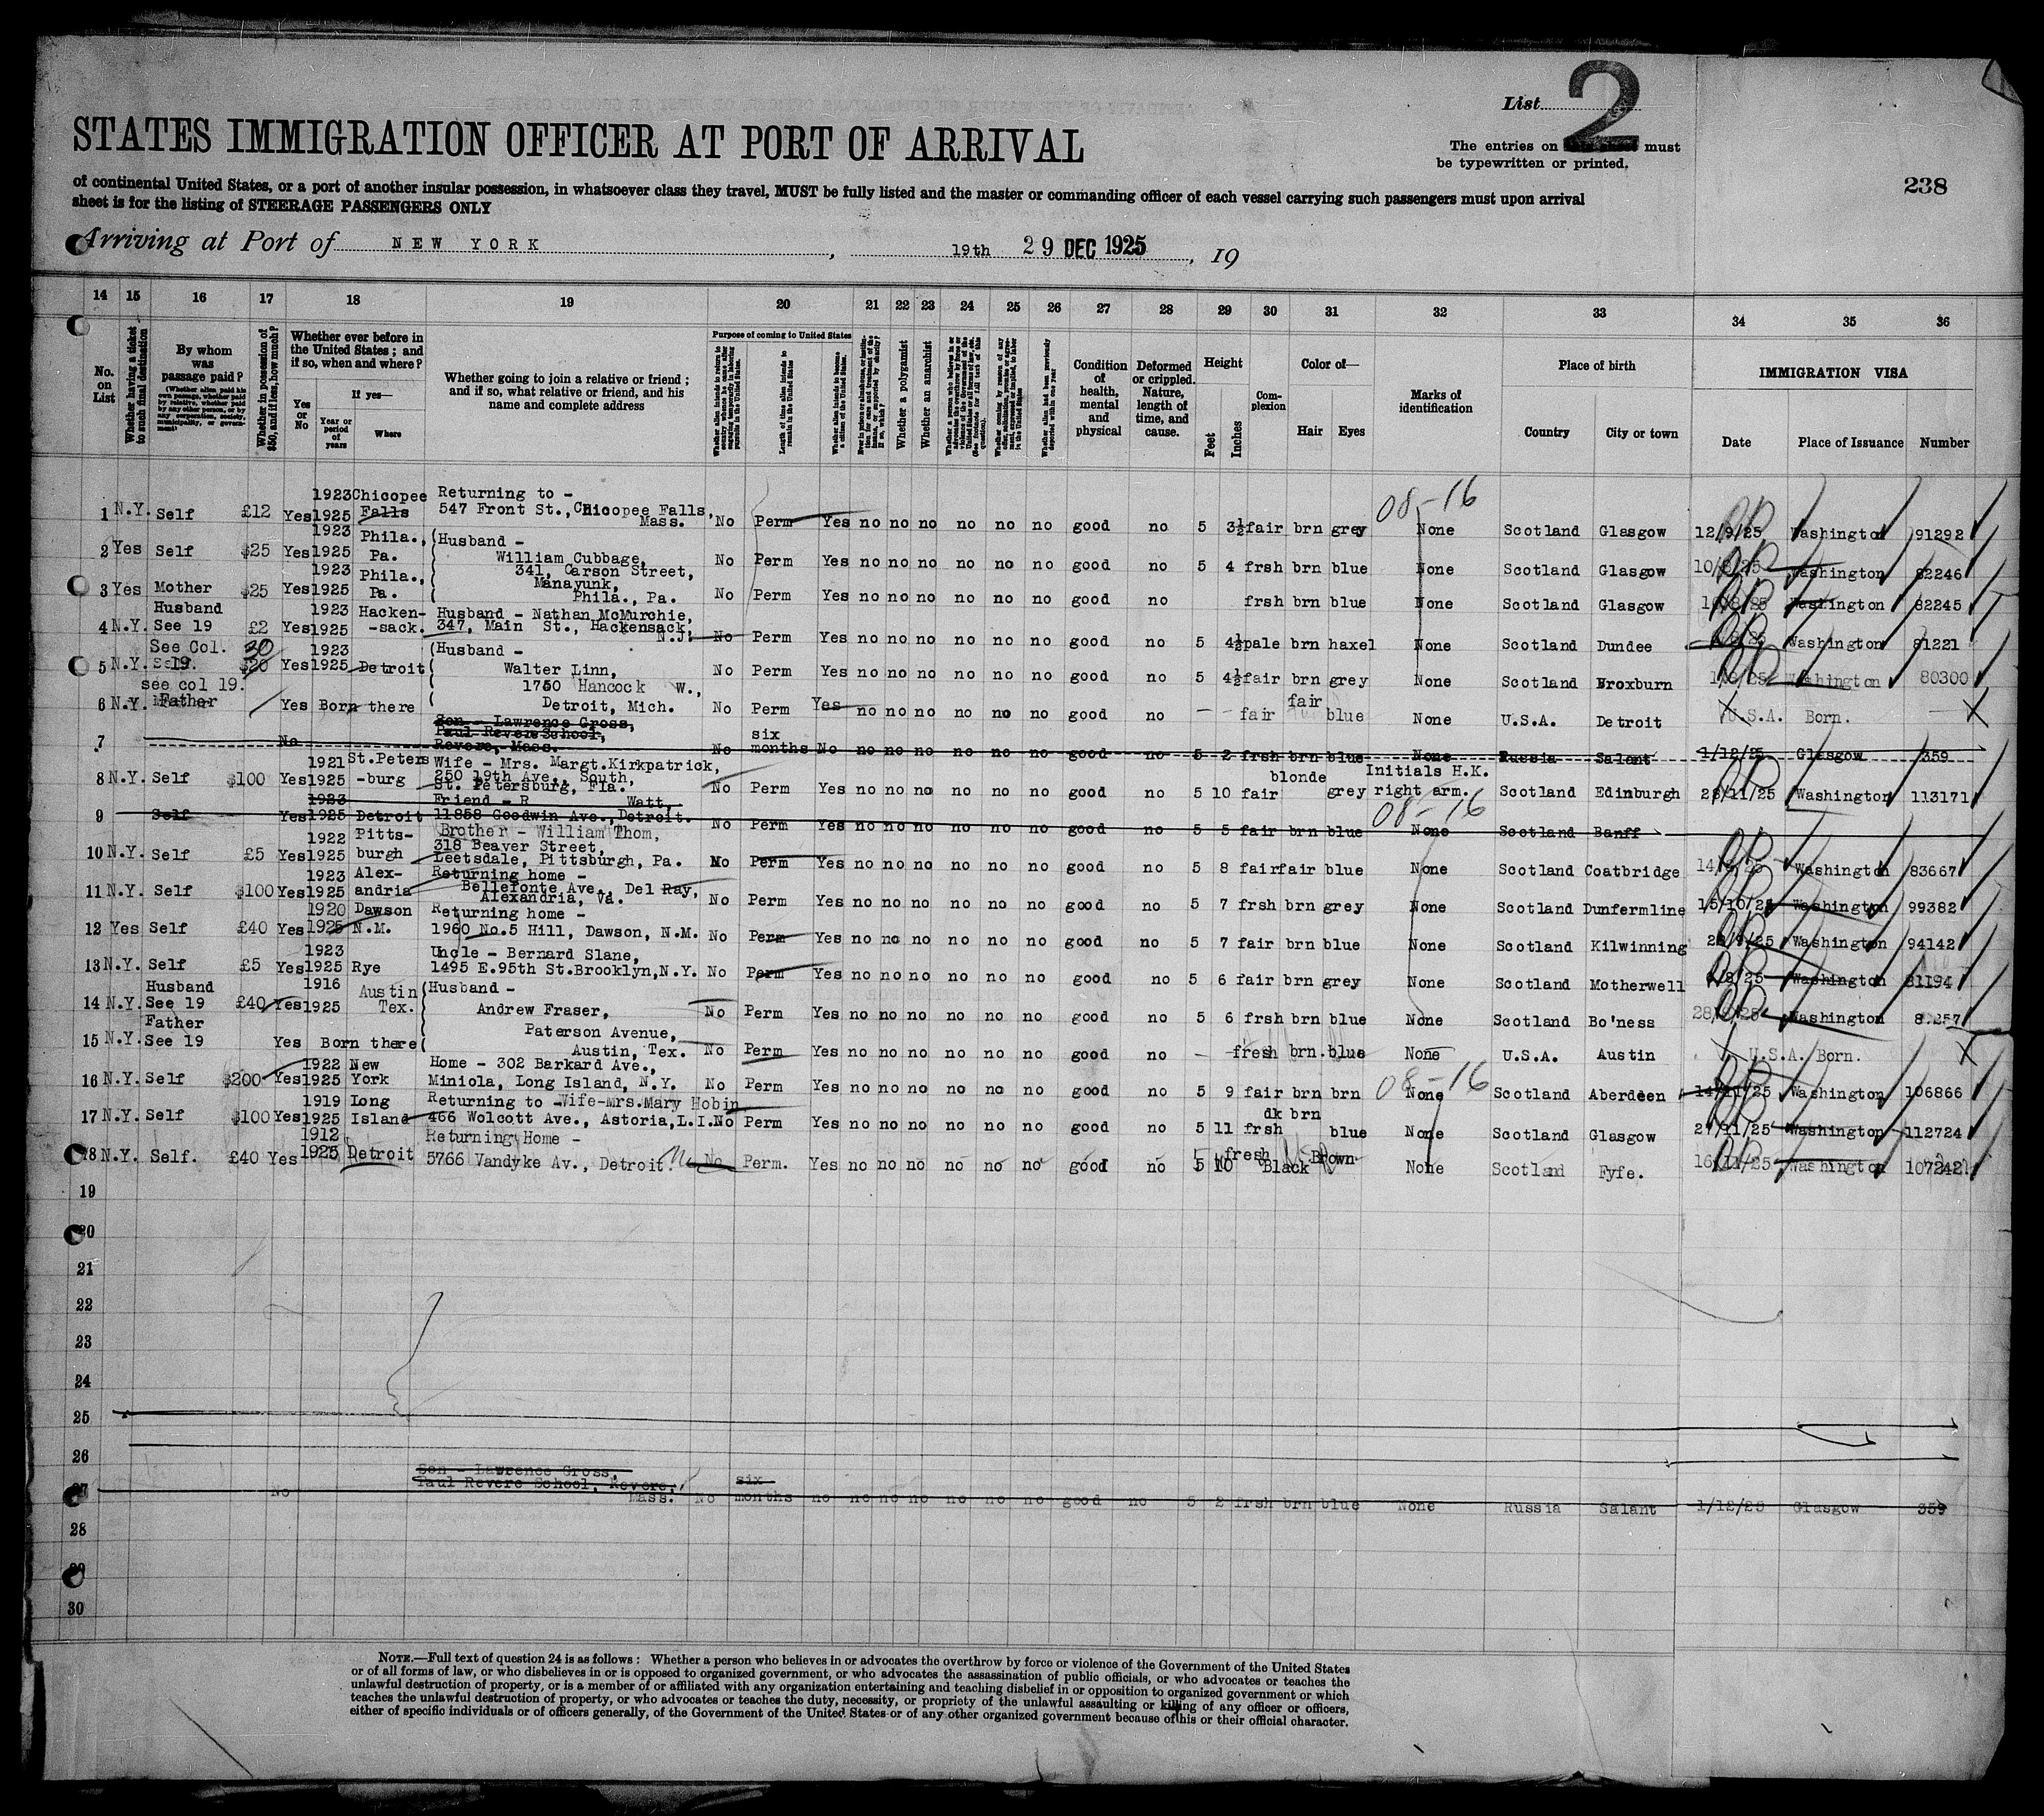 List 2
STATES IMMIGRATION OFFICER AT PORT OF ARRIVAL
The entries on must
be typewritten or printed.
238
of continental United States, or a port of another insular possession, in whatsoever class they travel, MUST be fully listed and the master or commanding officer of each vessel carrying such passengers must upon arrival
sheet is for the listing of STEERAGE PASSENGERS ONLY
Arriving at Port of NEW YORK, 19th 29 DEC 1925, 19
14 15 16 17 18 19 20 21 22 23 24 25 26 27 28 29 30 31 32 33 34 35 36
No. on List
Whether having a ticket to such final destination
By whom was passage paid?
Whether in possession of $50, and if less, how much?
Whether ever before in the United States; and if so, when and where?
Yes or No
If yes—
Year or period of years
Where
Whether going to join a relative or friend; and if so, what relative or friend, and his name and complete address
Purpose of coming to United States
Length of time alien intends to remain in the United States
Whether alien intends to become a citizen of the United States.
Whether a polygamist
Whether an anarchist
Whether alien had been previously deported within one year
Condition of health, mental and physical
Deformed or crippled. Nature, length of time, and cause.
Height
Feet
Inches
Complexion
Color of—
Hair
Eyes
Marks of identification
Place of birth
Country
City or town
IMMIGRATION VISA
Date
Place of Issuance
Number
08-16
1 N.Y. Self £12 Yes 1923 1925 Chicopee Falls Returning to - 547 Front St., Chicopee Falls, Mass. No Perm Yes no no no no no no good no 5 3½ fair brn grey None Scotland Glasgow 12/9/25 Washington 91292
2 Yes Self $25 Yes 1923 1925 Phila., Pa. Husband - William Cubbage, 341, Carson Street, No Perm Yes no no no no no no good no 5 4 frsh brn blue None Scotland Glasgow Washington 82246
3 Yes Mother $25 Yes 1923 1925 Phila., Pa. Manayunk, Phila., Pa. No Perm Yes no no no no no no good no frsh brn blue None Scotland Glasgow Washington 82245
4 N.Y. Husband See 19 £2 Yes 1923 1925 Hacken--sack. Husband - Nathan McMurchie, 347, Main St., Hackensack N.J. No Perm Yes no no no no no no good no 5 4½ pale brn haxel None Scotland Dundee Washington 81221
5 N.Y. See Col. 19. 30 $20 Yes 1923 1925 Detroit Husband - Walter Linn, 1750 Hancock W., No Perm Yes no no no no no no good no 5 4½ fair brn grey None Scotland Broxburn Washington 80300
6 N.Y. see col 19. Father Yes Born there Detroit, Mich. No Perm Yes no no no no no no good no - - fair fair blue None U.S.A. Detroit U.S.A. Born.
7 No Son - Lawrence Gross, Paul Revere School, Revere, Mass. No six months No no no no no no no good no 5 2 frsh brn blue None Russia Salant 1/12/25 Glasgow 359
8 N.Y. Self $100 Yes 1921 1925 St.Peters-burg Wife - Mrs. Margt.Kirkpatrick, 250 19th Ave., South, St. Petersburg, Fla. No Perm Yes no no no no no no good no 5 10 fair blonde grey Initials H.K. right arm. Scotland Edinburgh 28/11/25 Washington 113171
08-16
9 Self Yes 1923 1925 Detroit Friend - R Watt, 11858 Goodwin Ave., Detroit. No Perm Yes no no no no no no good no 5 5 fair brn blue None Scotland Banff
10 N.Y. Self £5 Yes 1922 1925 Pitts-burgh Brother - William Thom, 318 Beaver Street, Leetsdale, Pittsburgh, Pa. No Perm Yes no no no no no no good no 5 8 fair fair blue None Scotland Coatbridge Washington 83667
11 N.Y. Self $100 Yes 1923 1925 Alex-andria Returning home - Bellefonte Ave., Del Ray, Alexandria, Va. No Perm Yes no no no no no no good no 5 7 frsh brn grey None Scotland Dunfermline 15/10/25 Washington 99382
12 Yes Self £40 Yes 1920 1925 Dawson N.M. Returning home - 1960 No.5 Hill, Dawson, N.M. No Perm Yes no no no no no no good no 5 7 fair brn blue None Scotland Kilwinning Washington 94142
13 N.Y. Self £5 Yes 1923 1925 Rye Uncle - Bernard Slane, 1495 E.95th St.Brooklyn,N.Y. No Perm Yes no no no no no no good no 5 6 fair brn grey None Scotland Motherwell Washington 81194
14 N.Y. Husband See 19 £40 Yes 1916 1925 Austin Tex. Husband - Andrew Fraser, No Perm Yes no no no no no no good no 5 6 frsh brn blue None Scotland Bo'ness Washington
15 N.Y. Father See 19 Yes Born there Paterson Avenue, Austin, Tex. No Perm Yes no no no no no no good no - - fresh brn. blue None U.S.A. Austin U.S.A. Born.
16 N.Y. Self $200 Yes 1922 1925 New York Home - 302 Barkard Ave., Miniola, Long Island, N.Y. No Perm Yes no no no no no no good no 5 9 fair brn brn 08-16 None Scotland Aberdeen 14/11/25 Washington 106866
17 N.Y. Self $100 Yes 1919 1925 Long Island Returning to -Wife-Mrs.Mary Hobin 466 Wolcott Ave., Astoria,L.I. No Perm Yes no no no no no no good no 5 11 frsh dk brn blue None Scotland Glasgow 27/11/25 Washington 112724
18 N.Y. Self. £40 Yes 1912 1925 Detroit Returning Home - 5766 Vandyke Av., Detroit. No Perm. Yes no no no no no no good no 5 10 fresh Black Brown None Scotland Fyfe. 16/11/25 Washington 107242
19
20
21
22
23
24
25
26
27 No Son - Lawrence Gross, Paul Revere School, Revere, Mass. No six months no no no no no no no good no 5 2 frsh brn blue None Russia Salant 1/12/25 Glasgow 359
28
29
30
NOTE.—Full text of question 24 is as follows: Whether a person who believes in or advocates the overthrow by force or violence of the Government of the United States
or of all forms of law, or who disbelieves in or is opposed to organized government, or who advocates the assassination of public officials, or who advocates or teaches the
unlawful destruction of property, or is a member of or affiliated with any organization entertaining and teaching disbelief in or opposition to organized government or which
teaches the unlawful destruction of property, or who advocates or teaches the duty, necessity, or propriety of the unlawful assaulting or killing of any officer or officers,
either of specific individuals or of officers generally, of the Government of the United States or of any other organized government because of his or their official character.